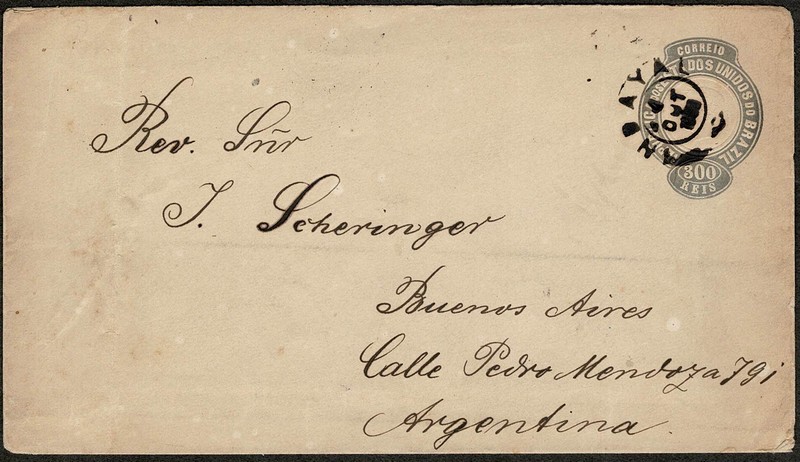 CORREIO
DOS UNIDOS DO BRAZIL
300
REIS
OUT
Rev. Snr
J. Scheringer
Buenos Aires
Calle Pedro Mendoza 791
Argentina.